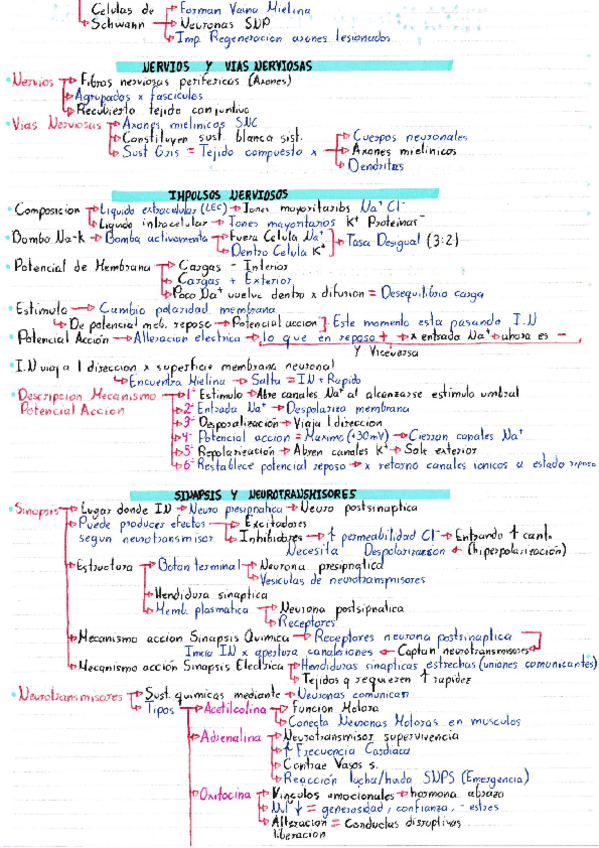 Celulas de → Forman Vaina Mielina
Schwann → Neuronas SNP
→ Imp. Regeneracion axones lesionados
NERVIOS Y VIAS NERVIOSAS
Nervios → Fibras nerviosas perifericas (Axones)
→ Agrupados x fasciculos
→ Recubierto tejido conjuntivo
Vias Nerviosas → Axones mielinicos SNC
→ Constituyen sust. blanca sist.
→ Sust Gris = Tejido compuesto x → Cuerpos neuronales
→ Axones mielinicos
→ Dendritas
IMPULSOS NERVIOSOS
Composicion → Liquido extracelular (LEC) → Iones mayoritarios Na⁺ Cl⁻
→ Liquido intracelular → Iones mayoritarios K⁺ Proteinas⁻
Bomba Na-k → Bombea activamente → Fuera Celula Na⁺
→ Dentro Celula K⁺ → Tasa Desigual (3:2)
Potencial de Membrana → Cargas - Interior
→ Cargas + Exterior
→ Poco Na⁺ vuelve dentro x difusion = Desequilibrio carga
Estimulo → Cambio polaridad membrana
→ De potencial meb. reposo → Potencial accion } Este momento esta pasando I.N
Potencial Acción → Alteracion electrica → lo que en reposo + → x entrada Na⁺ → ahora es -
y Viceversa
I.N viaja 1 direccion x superficie membrana neuronal
→ Encuentra Mielina → Salta = IN + Rapido
Descripcion Mecanismo → 1º Estimulo → Abre canales Na⁺ al alcanzarse estimulo umbral
Potencial Accion → 2º Entrada Na⁺ → Despolariza membrana
→ 3º Desporalización → Viaja 1 direccion
→ 4º Potencial accion = Maximo (+30mV) → Cierran canales Na⁺
→ 5º Repolarización → Abren canales K⁺ → Sale exterior
→ 6º Restablece potencial reposo → x retorno canales ionicos a estado reposo
SINAPSIS Y NEUROTRANSMISORES
Sinapsis → Lugar donde IN → Neuro presipnatica → Neuro postsinaptica
→ Puede producir efectos → Excitadores
segun neurotransmisor → Inhibidores → ↑ permeabilidad Cl⁻ → Entrando ↑ cant.
Necesita Despolarizacion ← (hiperpolarización)
→ Estructura → Boton terminal → Neurona presipnatica
→ Vesiculas de neurotransmisores
→ Hendidura sinaptica
→ Memb. plasmatica → Neurona postsipnatica
→ Receptores
→ Mecanismo accion Sinapsis Quimica → Receptores neurona postsinaptica
Inicia IN x apertura canales iones ← Captan neurotransmisores
→ Mecanismo acción Sinapsis Electrica → Hendiduras sinapticas estrechas (uniones comunicantes)
→ Tejidos q requieren ↑ rapidez
Neurotransmisores → Sust. quimicas mediante → Neuronas comunican
→ Tipos → Acetilcolina → Funcion Motora
→ Conecta Neuronas Motoras en musculos
→ Adrenalina → Neurotransmisor supervivencia
→ ↑ Frecuencia Cardiaca
→ Contrae Vasos s.
→ Reacción lucha/huida SNPS (Emergencia)
→ Oxitocina → Vinculos emocionales → hormona abrazo
→ = generosidad, confianza, - estres
→ Alteracion = Conductas disruptivas
liberacion